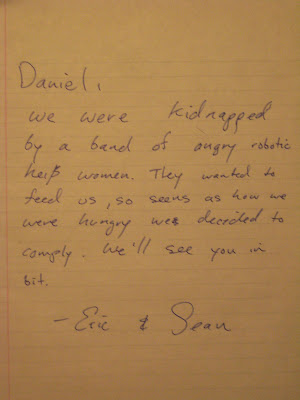 Daniel,
we were kidnapped
by a band of angry robotic
women. They wanted to
feed us, so seens as how we
were hungry we decided to
comply. We'll see you in
bit.
- Eric & Sean